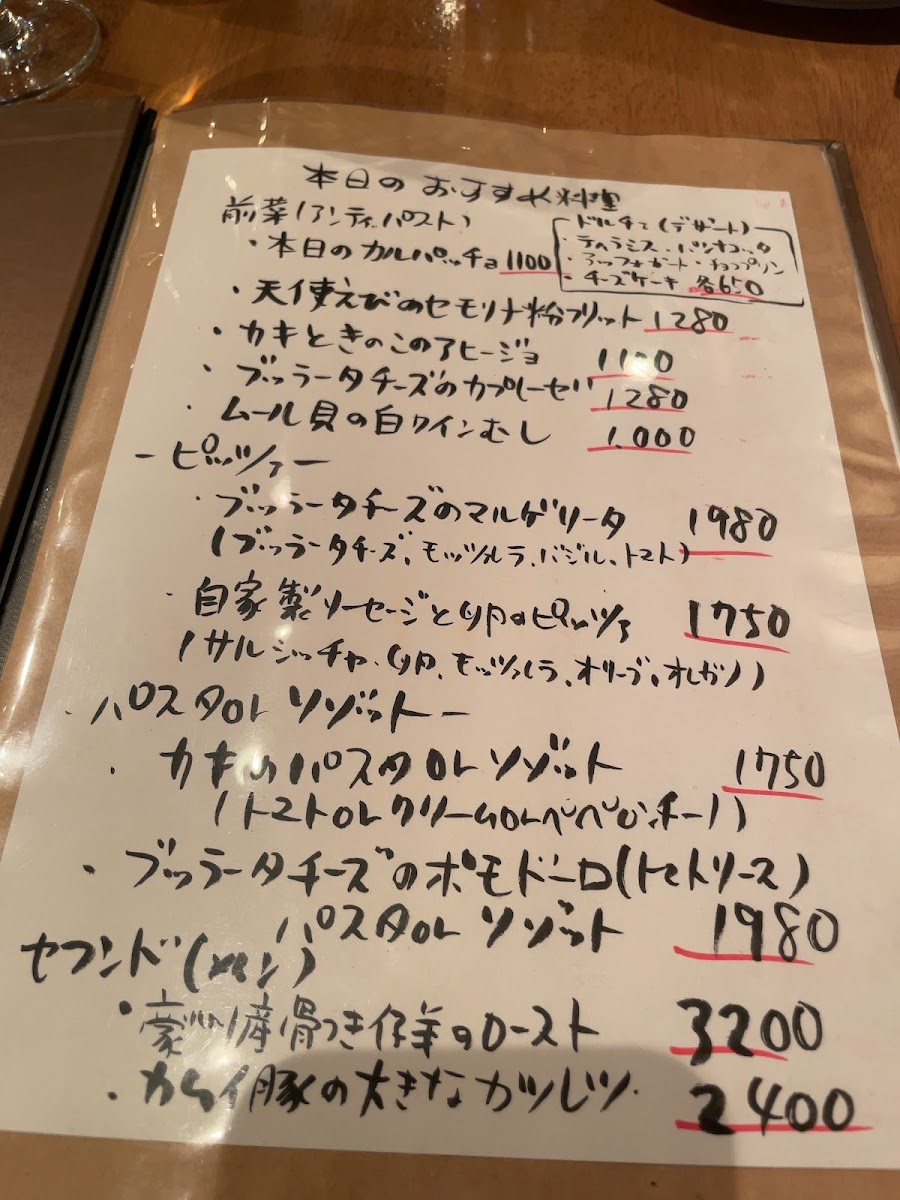 本日のおすすめ料理
前菜(アンティパスト)
・本日のカルパッチョ 1100
ドルチェ(デザート)
・テラミス・パンナコッタ
・アッフォガート・チョコプリン
・チーズケーキ 各650
・天使えびのセモリナ粉フリット 1280
・カキときのこのアヒージョ 1100
・ブッラータチーズのカプレーゼ 1280
・ムール貝の白ワインむし 1.000
ーピッツァー
・ブッラータチーズのマルゲリータ 1980
(ブッラータチーズ、モッツァレラ、バジル、トマト)
・自家製ソーセージと卵のピッツァ 1750
(サルシッチャ、卵、モッツァレラ、オリーブ、オレガノ)
・パスタorリゾットー
・カキのパスタorリゾット 1750
(トマトorクリームorペペロンチーノ)
・ブッラータチーズのポモドーロ(トマトソース)
パスタorリゾット 1980
セコンド(メイン)
・豪州産骨つき仔羊のロースト 3200
・カムイ豚の大きなカツレツ 2400